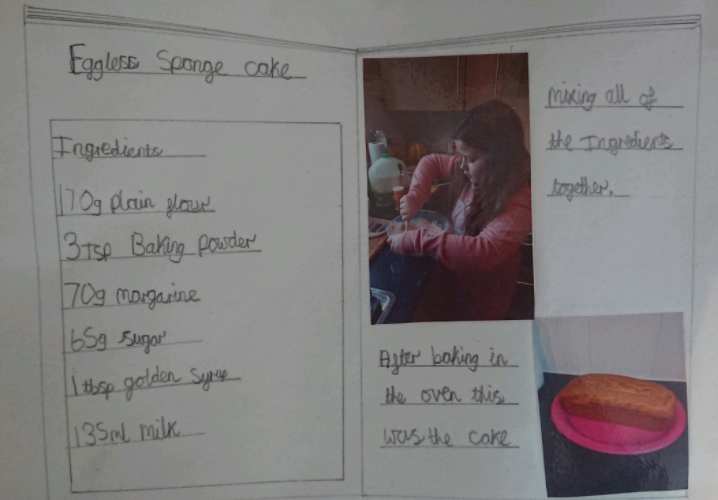 Eggless Sponge cake
Ingredients
170g plain flour
3tsp Baking powder
70g margarine
65g sugar
1 tbsp golden syrup
135ml milk
Mixing all of
the Ingredients
together.
After baking in
the oven this
was the cake